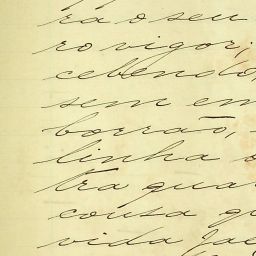 ra o seu
ro vigor;
cebendo,
sem em
borrão,
linha o
tra qual
cousa qu
vida